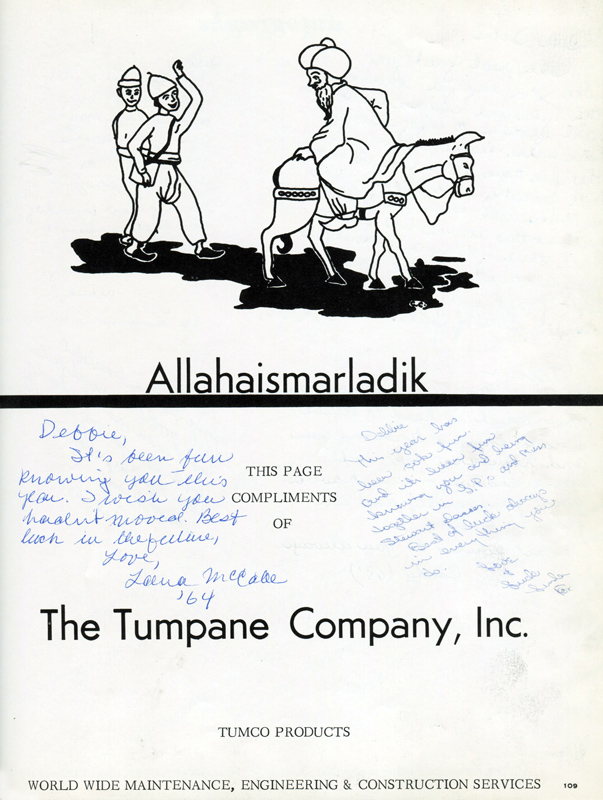 Allahaismarladik
Debbie,
It's been fun
knowing you this
year. I wish you
hadn't moved. Best
luck in the future,
Love,
McCabe
'64
THIS PAGE
COMPLIMENTS
OF
Debbie
This year has
been fun.
and it's been fun
knowing you and being
together in and Miss
Stewart
Best of luck always
in everything you
do.
Love
The Tumpane Company, Inc.
TUMCO PRODUCTS
WORLD WIDE MAINTENANCE, ENGINEERING & CONSTRUCTION SERVICES
109